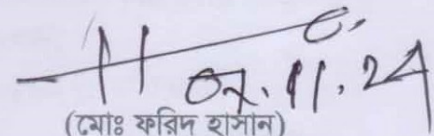 07.11.24
(মোঃ ফরিদ হাসান)